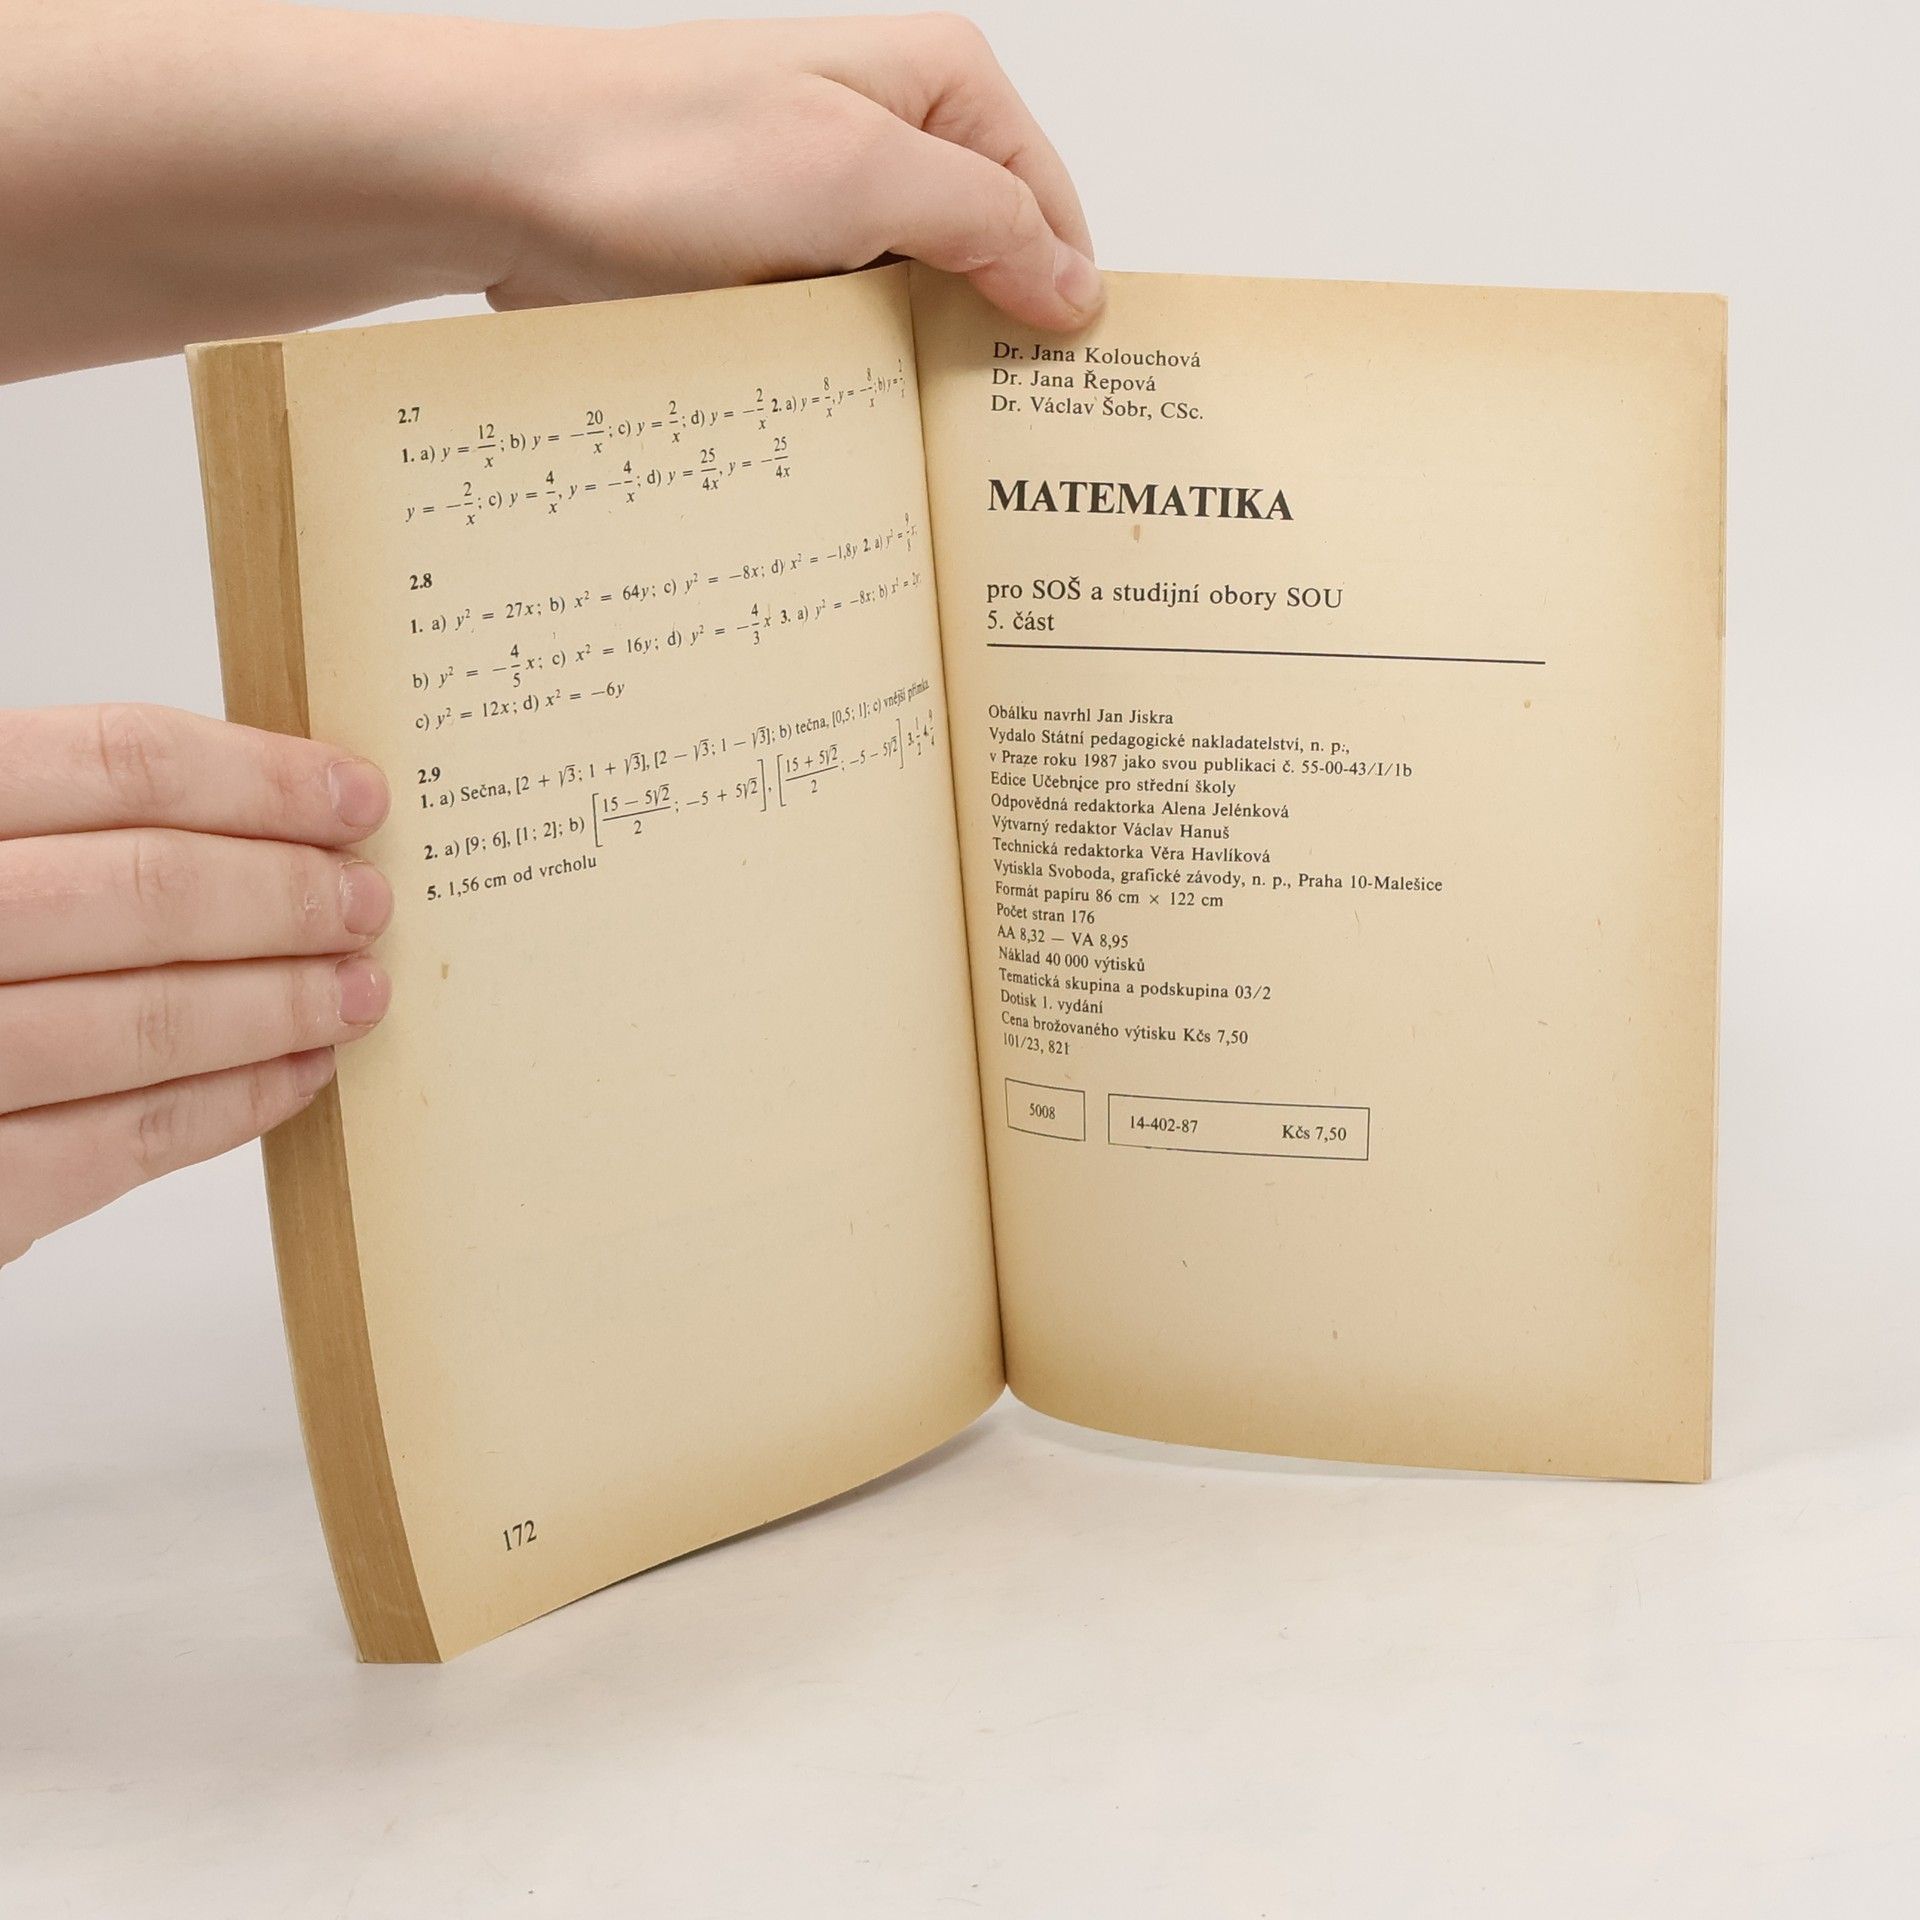 2.7
1. a) y = 12/x; b) y = −20/x; c) y = 2/x; d) y = −2/x 2. a) y = 8/x, y = −8/x; b) y = 2/x,
y = −2/x; c) y = 4/x, y = −4/x; d) y = 25/4x, y = −25/4x
2.8
1. a) y² = 27x; b) x² = 64y; c) y² = −8x; d) x² = −1,8y 2. a) y² = 9/8 x;
b) y² = −4/5 x; c) x² = 16y; d) y² = −4/3 x 3. a) y² = −8x; b) x² = 2y;
c) y² = 12x; d) x² = −6y
2.9
1. a) Sečna, [2 + √3; 1 + √3], [2 − √3; 1 − √3]; b) tečna, [0,5; 1]; c) vnější přímka
2. a) [9; 6], [1; 2]; b) [(15 − 5√2)/2; −5 + 5√2], [(15 + 5√2)/2; −5 − 5√2] 3. 1/2 4. 9/4
5. 1,56 cm od vrcholu
172
Dr. Jana Kolouchová
Dr. Jana Řepová
Dr. Václav Šobr, CSc.
MATEMATIKA
pro SOŠ a studijní obory SOU
5. část
Obálku navrhl Jan Jiskra
Vydalo Státní pedagogické nakladatelství, n. p.,
v Praze roku 1987 jako svou publikaci č. 55-00-43/I/1b
Edice Učebnice pro střední školy
Odpovědná redaktorka Alena Jelénková
Výtvarný redaktor Václav Hanuš
Technická redaktorka Věra Havlíková
Vytiskla Svoboda, grafické závody, n. p., Praha 10-Malešice
Formát papíru 86 cm × 122 cm
Počet stran 176
AA 8,32 — VA 8,95
Náklad 40 000 výtisků
Tematická skupina a podskupina 03/2
Dotisk 1. vydání
Cena brožovaného výtisku Kčs 7,50
101/23, 821
5008
14-402-87 Kčs 7,50